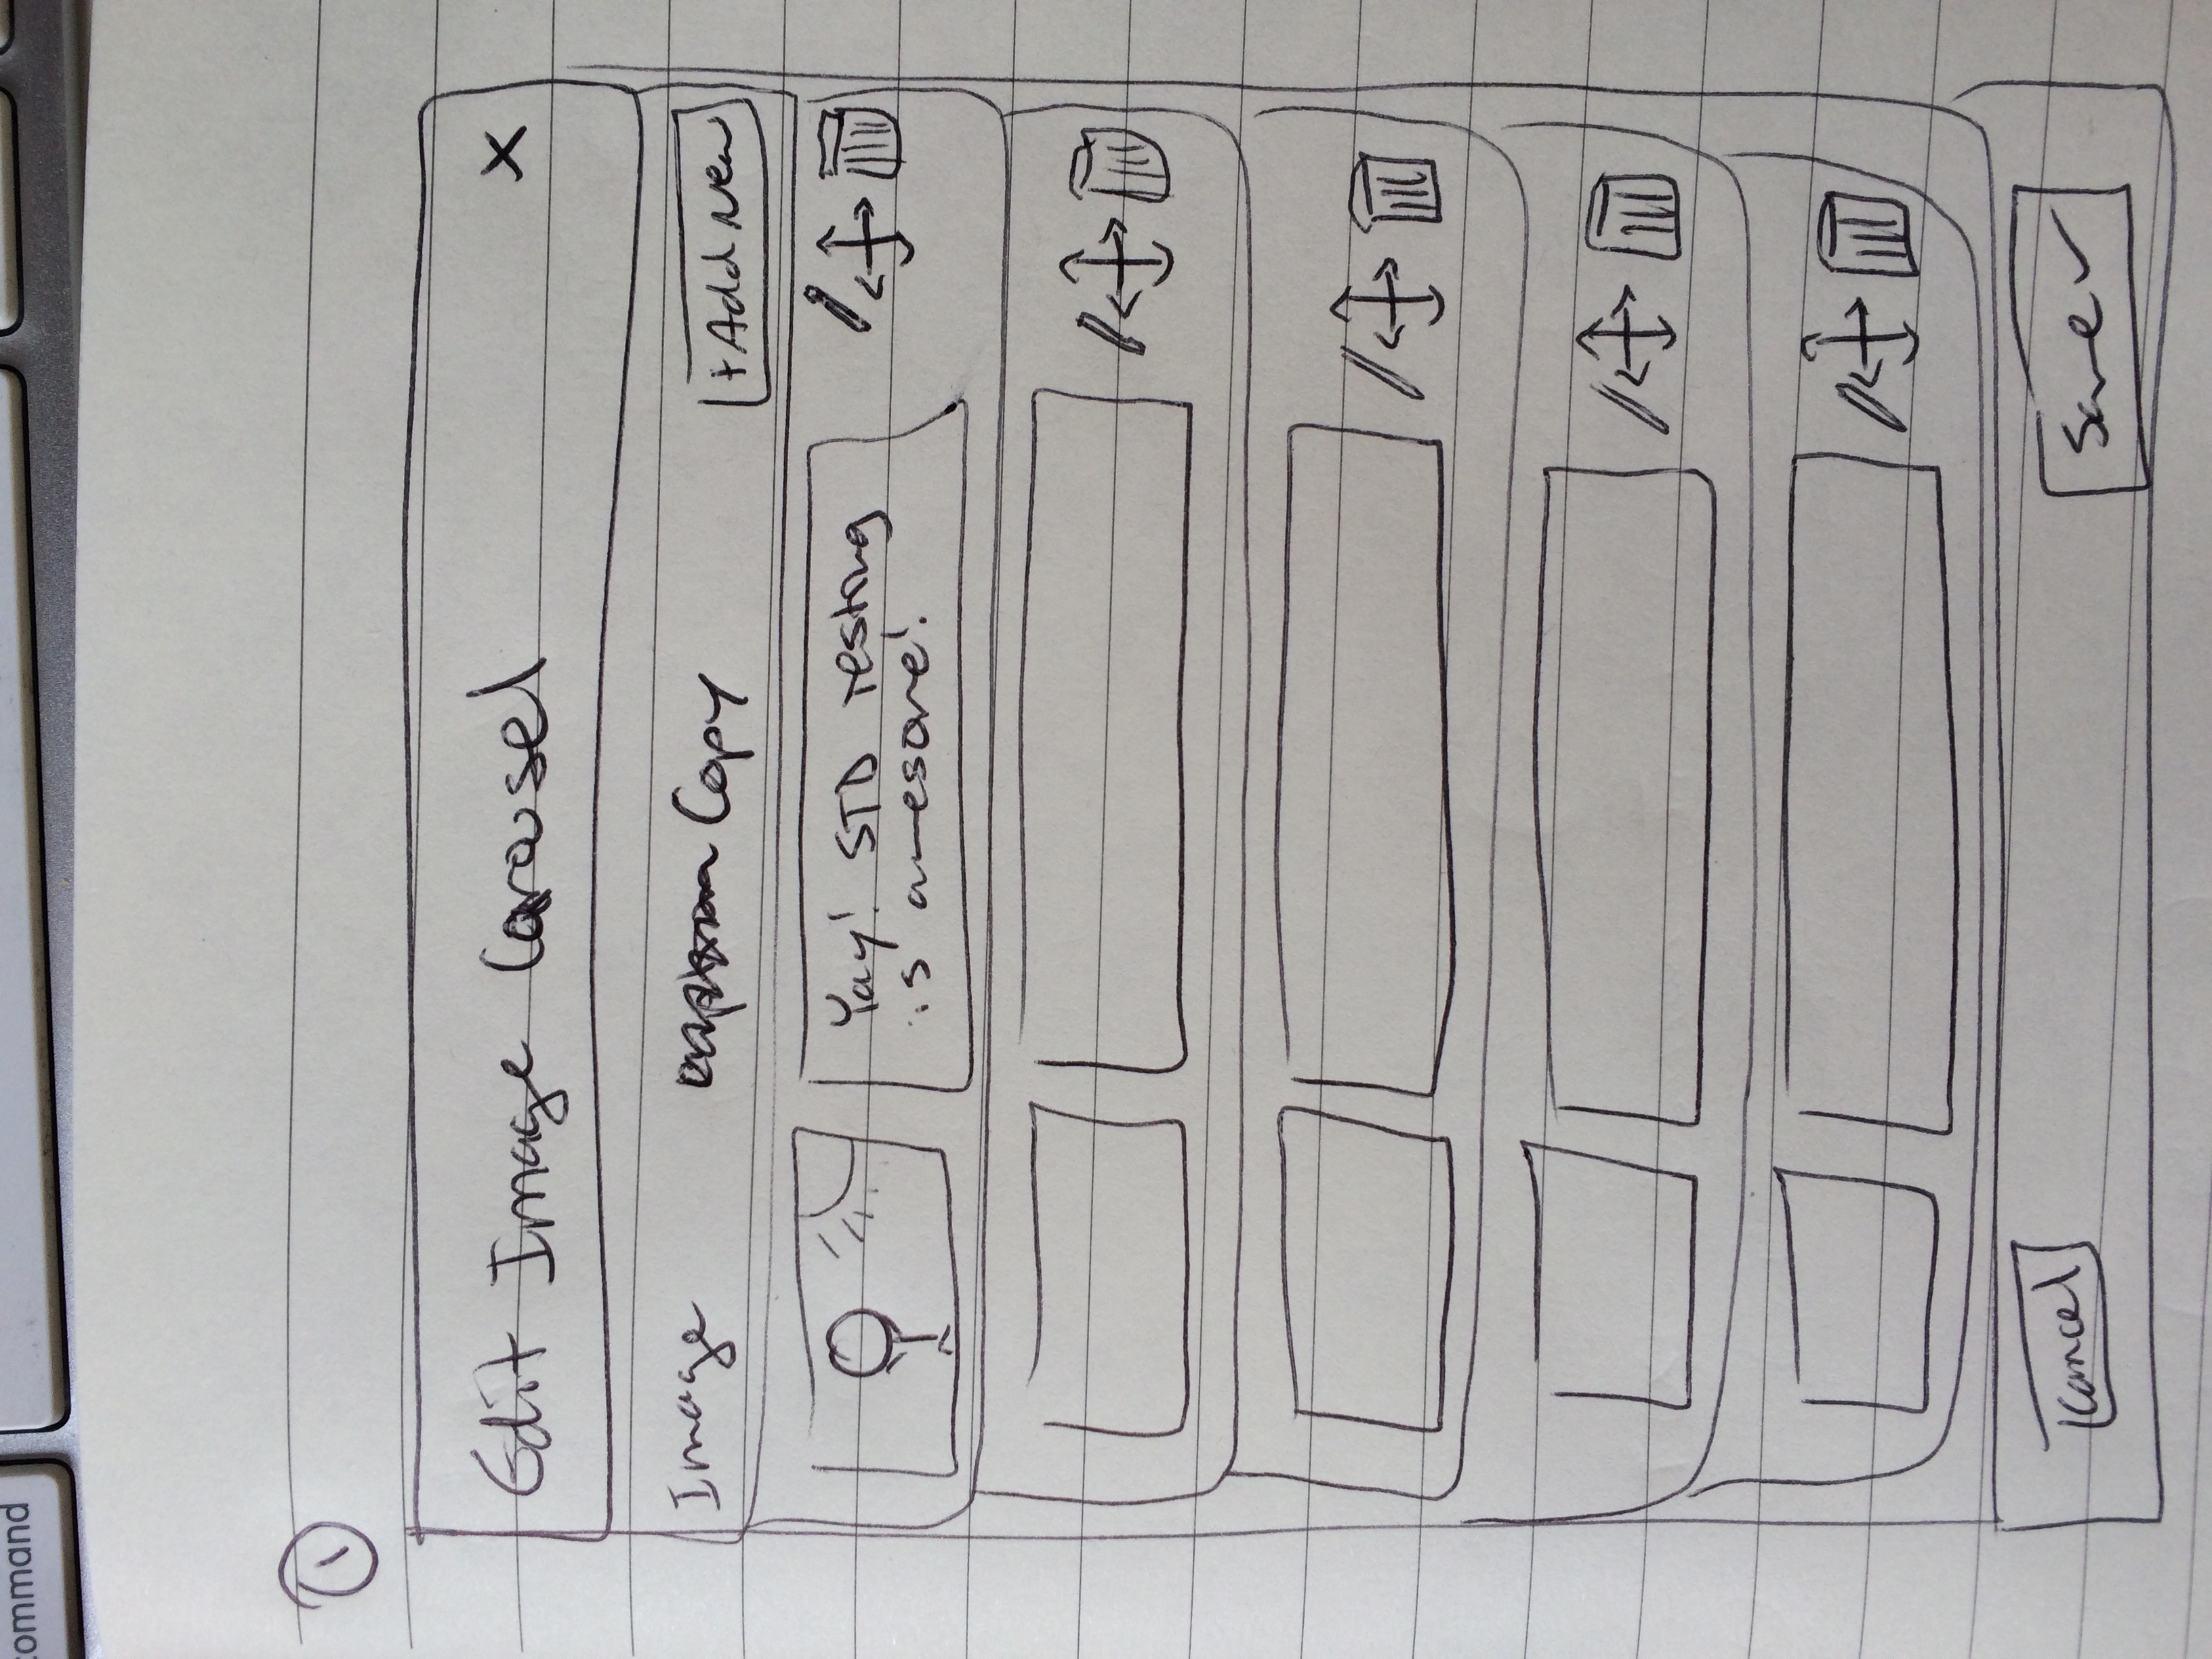 1
Edit Image Carousel X
Image Copy +Add New
Yay! STD testing
is awesome!
Cancel Save
command